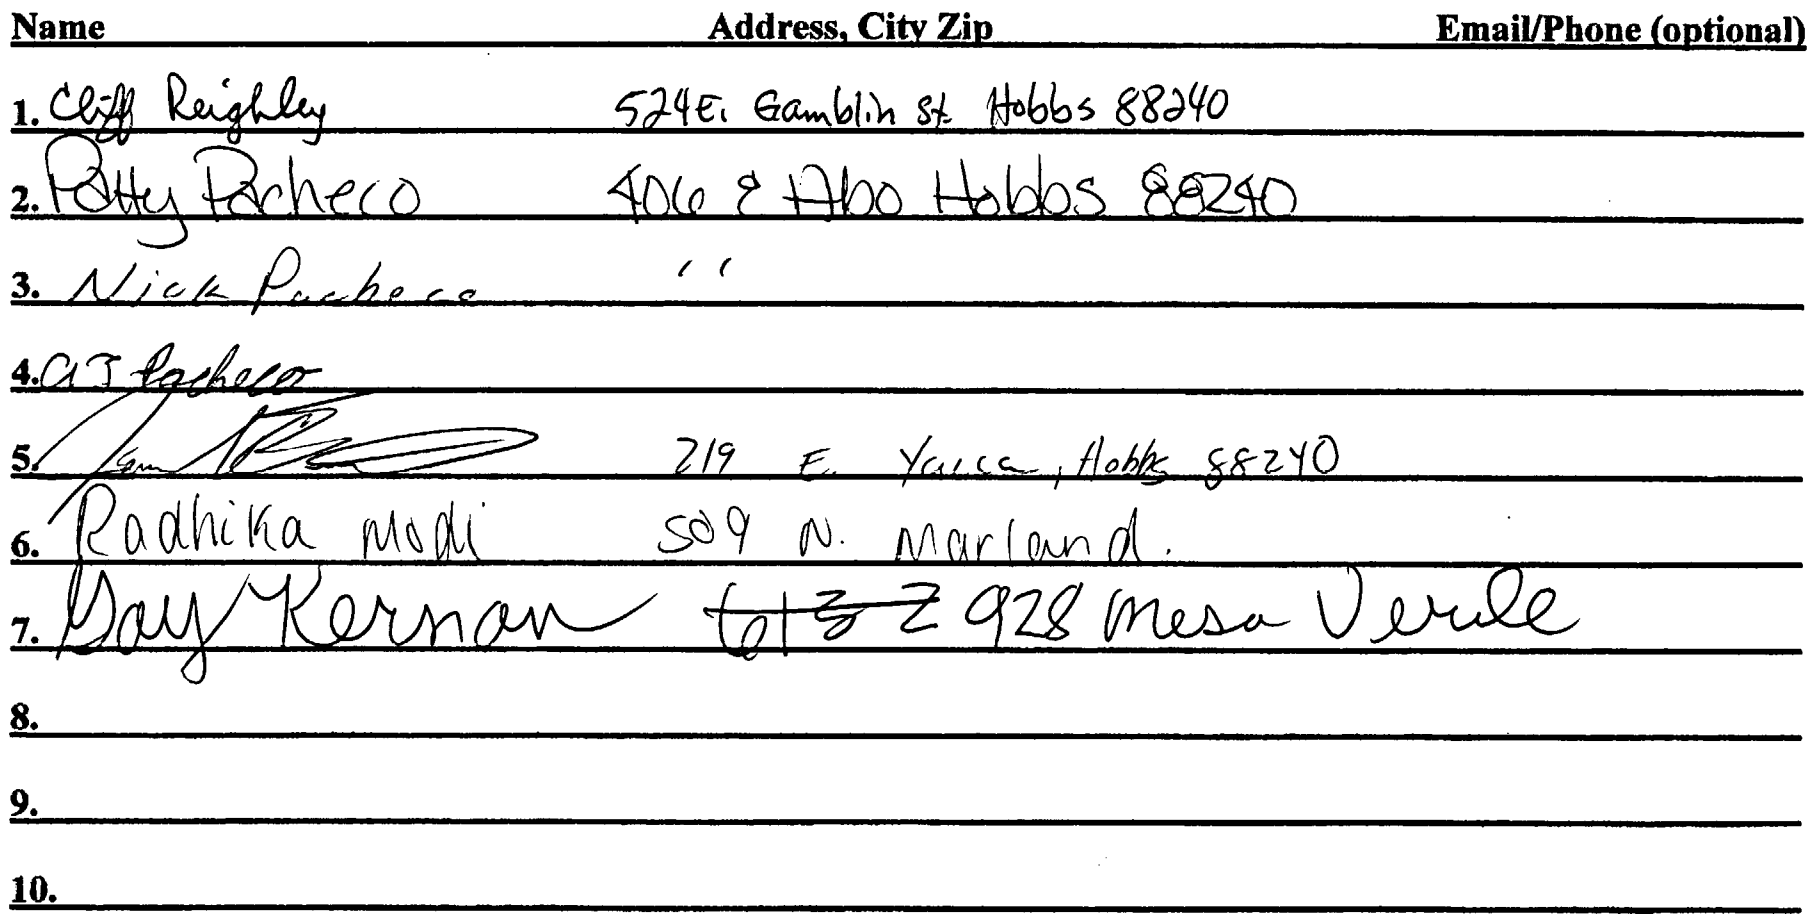 Name Address, City Zip Email/Phone (optional)
1. Cliff Reighley 524 E. Gamblin St. Hobbs 88240
2. Patty Pacheco 406 E Abo Hobbs 88240
3. Nick Pacheco ' '
4. AJ Pacheco
5. 219 E. Yucca, Hobbs 88240
6. Radhika Modi 509 N. Marland.
7. Gay Kernan 928 Mesa Verde
8.
9.
10.